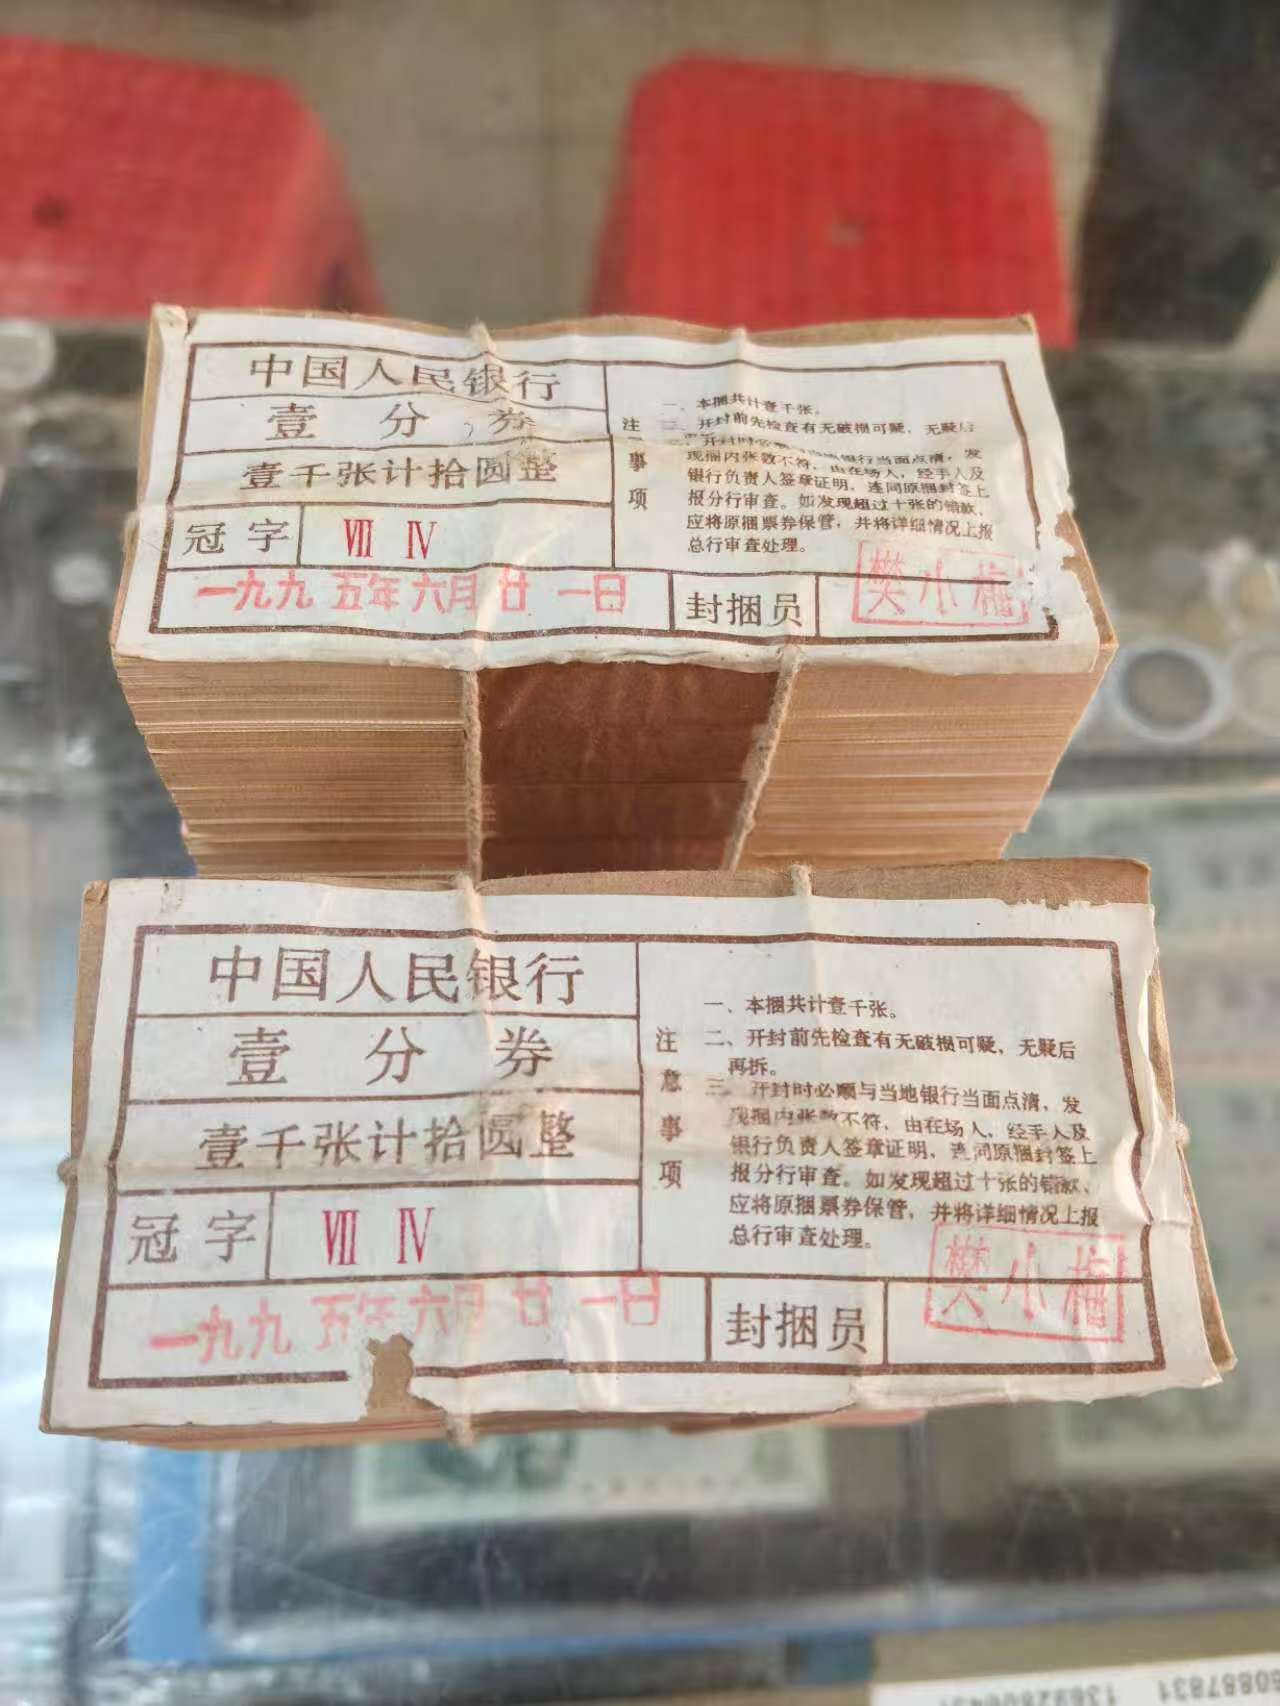 中国人民银行
壹分券
壹千张计拾圆整
冠字 Ⅶ Ⅳ
一九九五年六月廿一日
注
事
项
一、本捆共计壹千张。
开封前先检查有无破损可疑,无疑后
现捆内张数不符,由在场人,经手人及
银行负责人签章证明,连同原捆封签上
报分行审查。如发现超过十张的错款,
应将原捆票券保管,并将详细情况上报
总行审查处理。
封捆员 樊小梅
中国人民银行
壹分券
壹千张计拾圆整
冠字 Ⅶ Ⅳ
一九九五年六月廿一日
注意事项
一、本捆共计壹千张。
二、开封前先检查有无破损可疑,无疑后
再拆。
三、开封时必顺与当地银行当面点清,发
现捆内张数不符,由在场人,经手人及
银行负责人签章证明,连同原捆封签上
报分行审查。如发现超过十张的错款、
应将原捆票券保管,并将详细情况上报
总行审查处理。
封捆员 樊小梅